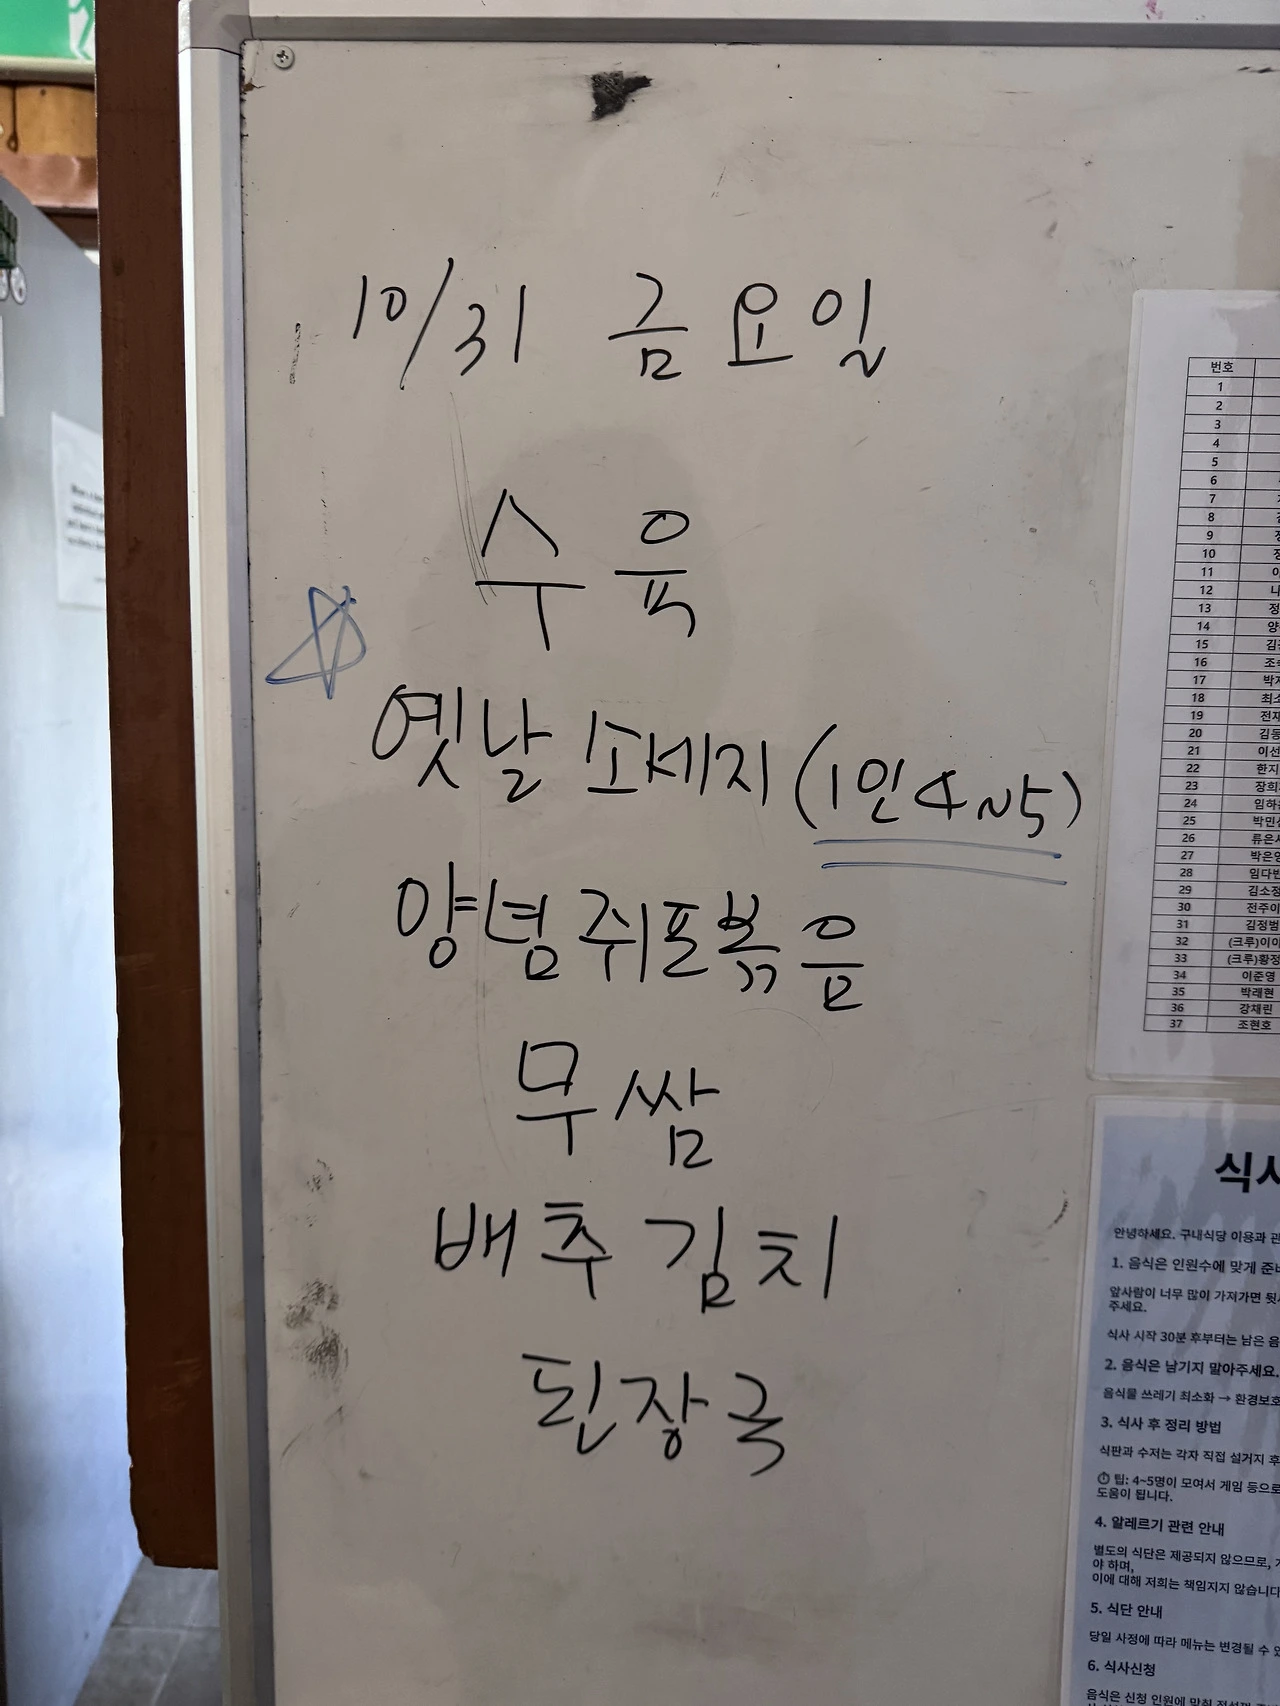 10/31 금요일
수육
옛날소세지(1인4~5)
양념쥐포볶음
무쌈
배추김치
된장국
번호
1
2
3
4
5
6
7
8
9
10
11
12
13
14
15
16
17
18
19
20
21
22 한지
23 장희
24 임하
25 박민
26 류은
27 박은영
28 임다빈
29 김소정
30 전주이
31 김정범
32 (크루)이이
33 (크루)황정
34 이준영
35 박래현
36 강채린
37 조현호
식사
안녕하세요. 구내식당 이용과 관
1. 음식은 인원수에 맞게 준비
앞사람이 너무 많이 가져가면 뒷
주세요.
식사 시작 30분 후부터는 남은 음
2. 음식은 남기지 말아주세요.
음식물 쓰레기 최소화 → 환경보호
3. 식사 후 정리 방법
식판과 수저는 각자 직접 설거지 후
팁: 4~5명이 모여서 게임 등으로
도움이 됩니다.
4. 알레르기 관련 안내
별도의 식단은 제공되지 않으므로,
야 하며,
이에 대해 저희는 책임지지 않습니다
5. 식단 안내
당일 사정에 따라 메뉴는 변경될 수 있
6. 식사신청
음식은 신청 인원에 맞춰